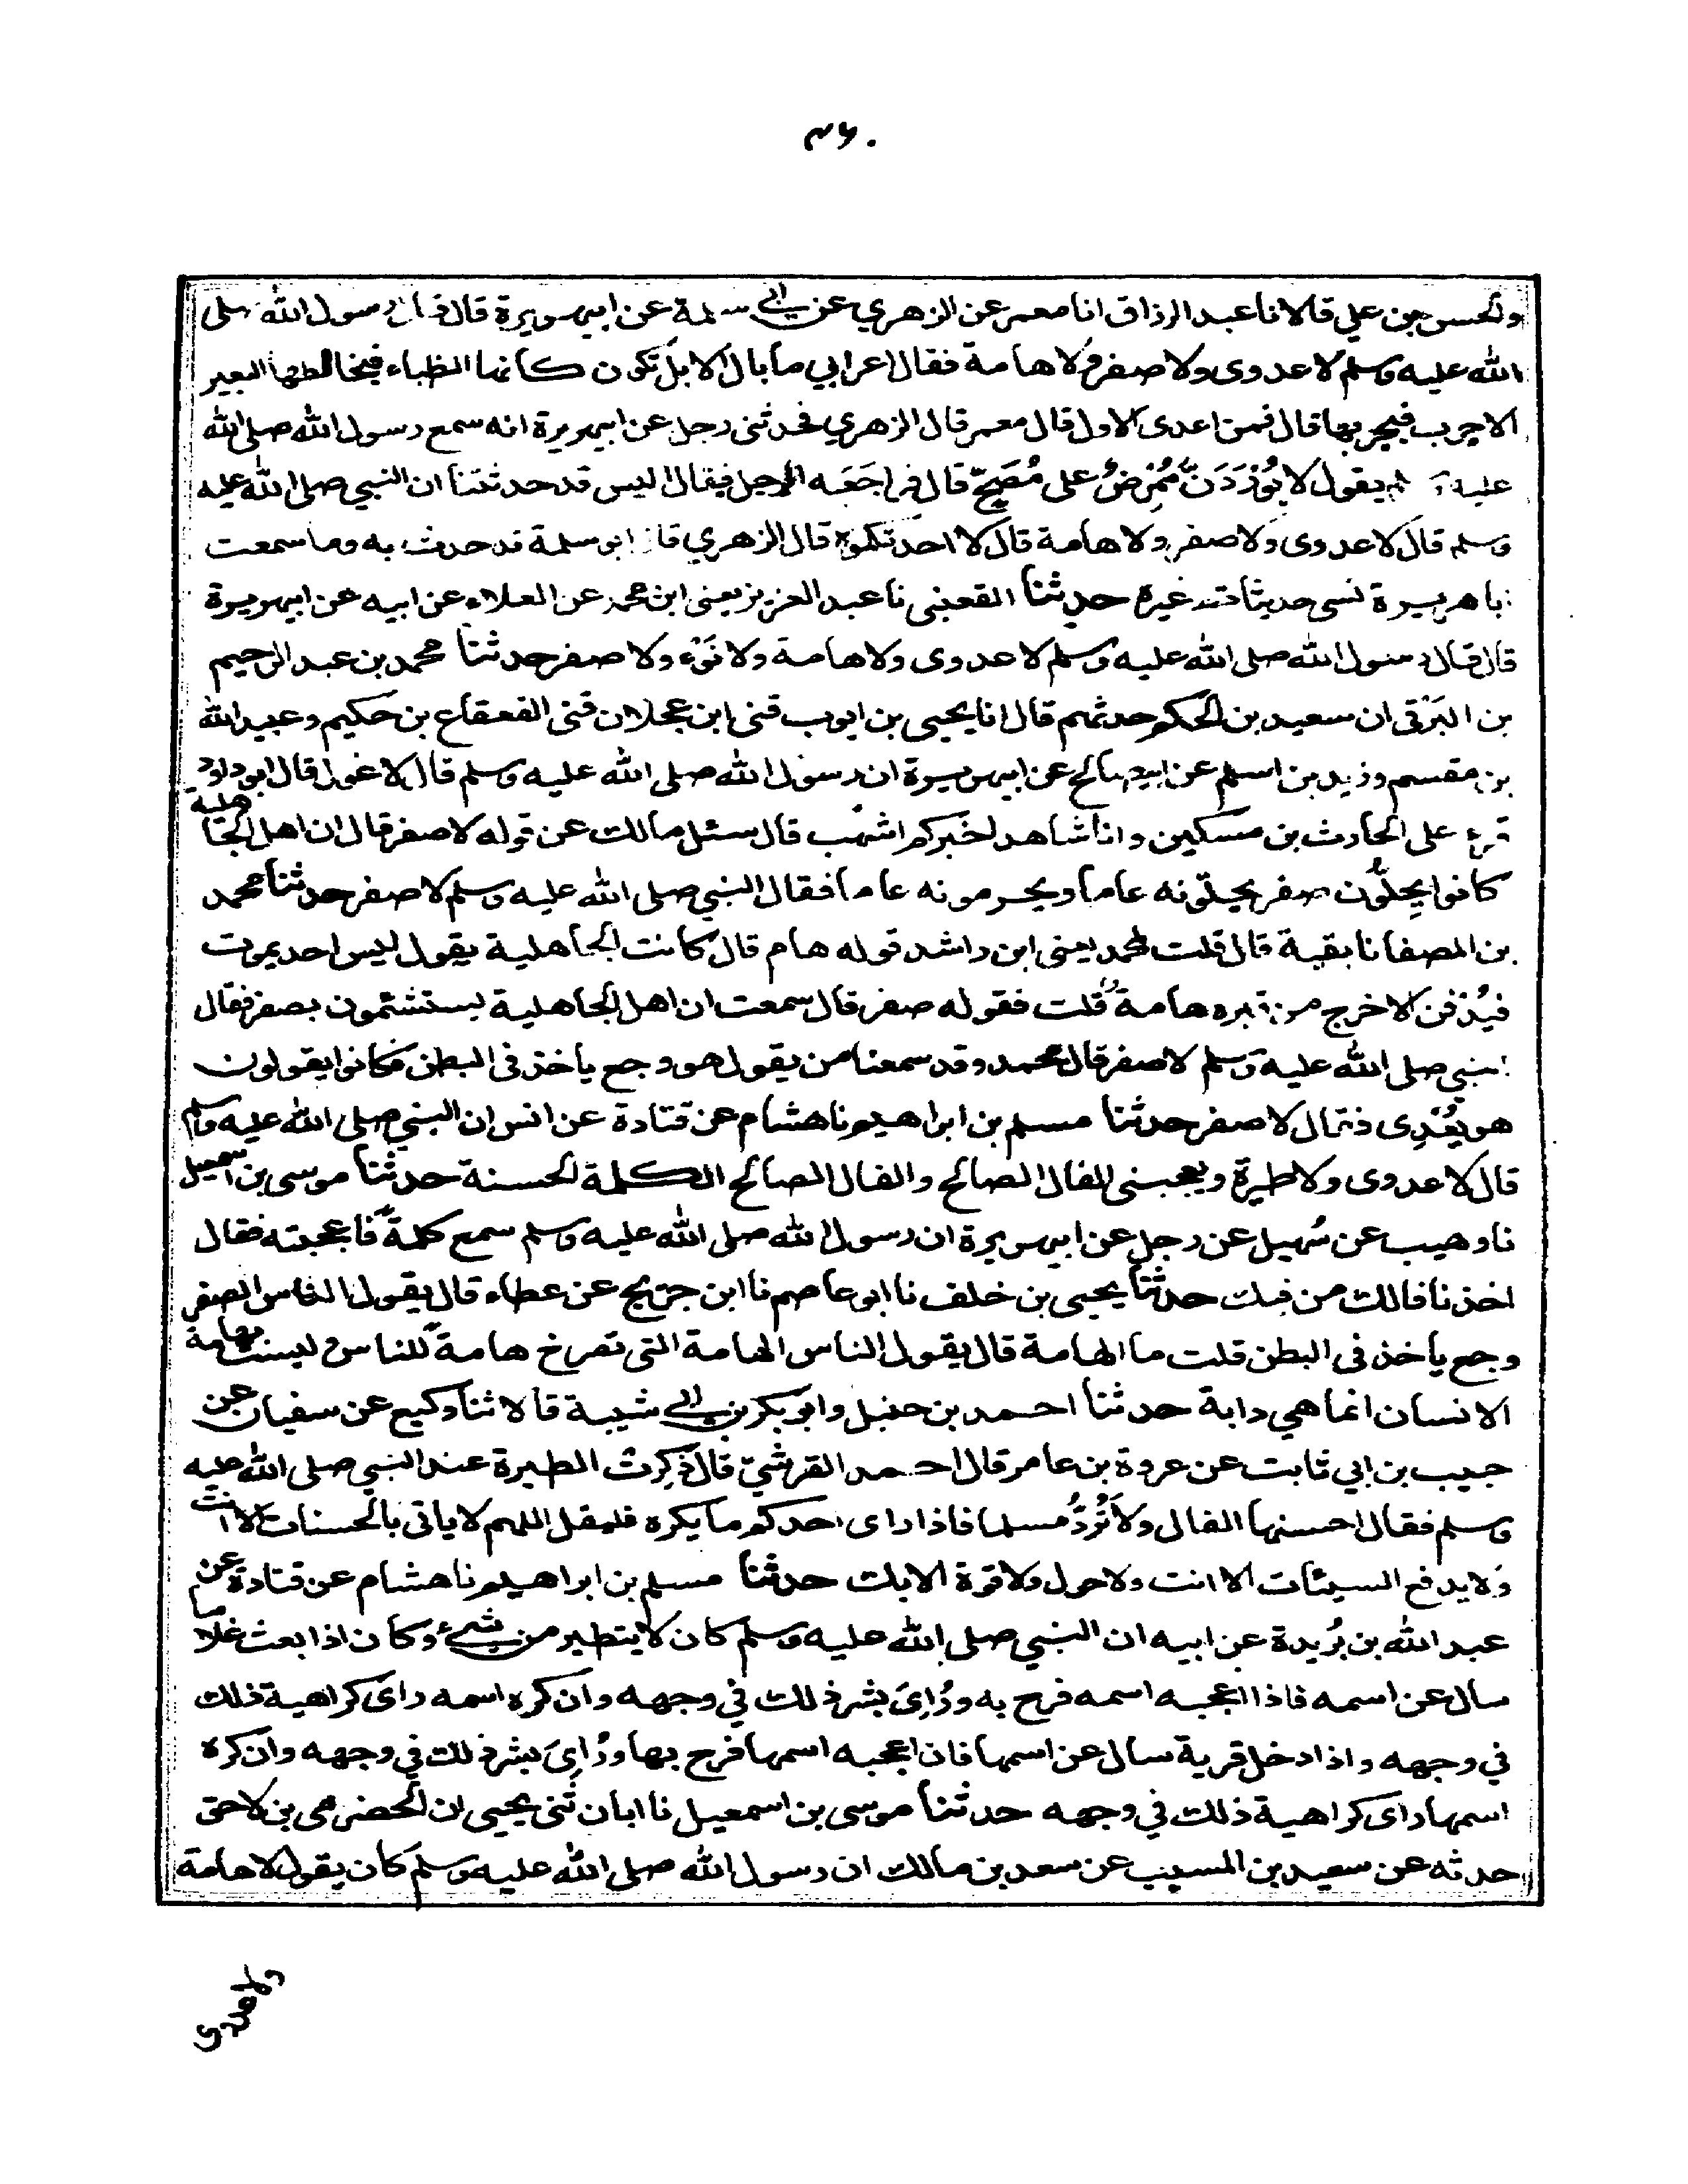 ٣٦٠
والحسن بن علي قالا نا عبد الرزاق انا معمر عن الزهري عن ابي سلمة عن ابي هريرة قال قال رسول الله صلى
الله عليه وسلم لا عدوى ولا صفر ولا هامة فقال اعرابي ما بال الابل تكون كانها الظباء فيخالطها البعير
الاجرب فيجربها قال فمن اعدى الاول قال معمر قال الزهري فحدثنى رجل عن ابي هريرة انه سمع رسول الله صلى الله
عليه وسلم يقول لا يُوْرَدَنَّ مُمْرِضٌ على مُصَحٍّ قال فراجَعَه الرجل فقال اليس قد حدثتنا ان النبي صلى الله عليه
وسلم قال لا عدوى ولا صفر ولا هامة قال لا احدثكموه قال الزهري قال ابو سلمة قد حدث به وما سمعت
ابا هريرة نسى حديثا قط غيره حدثنا القعنبى نا عبد العزيز يعنى ابن محمد عن العلاء عن ابيه عن ابي هريرة
قال قال رسول الله صلى الله عليه وسلم لا عدوى ولا هامة ولا نَوْء ولا صفر حدثنا محمد بن عبد الرحيم
بن البَرْقى ان سعيد بن الحكم حدثهم قال انا يحيى بن ايوب ثنى ابن عجلان ثنى القعقاع بن حكيم وعبيد الله
بن مقسم وزيد بن اسلم عن ابي صالح عن ابي هريرة ان رسول الله صلى الله عليه وسلم قال لا غول قال ابو داود
قرئ على الحارث بن مسكين وانا شاهد اخبركم اشهب قال سئل مالك عن قوله لا صفر قال ان اهل الجاهلية
كانوا يحِلُّون صفر يحلّونه عاما ويحرمونه عاما فقال النبي صلى الله عليه وسلم لا صفر حدثنا محمد
بن المصفا نا بقية قال قلت لمحمد يعنى ابن راشد قوله هام قال كانت الجاهلية يقول ليس احد يموت
فيُدْفن الا خرج من قبره هامة قلت فقوله صفر قال سمعت ان اهل الجاهلية يستشئمون بصفر فقال
النبي صلى الله عليه وسلم لا صفر قال محمد وقد سمعنا من يقول هو وجع ياخذ فى البطن فكانوا يقولون
هو يُعْدِى فقال لا صفر حدثنا مسلم بن ابراهيم نا هشام عن قتادة عن انس ان النبي صلى الله عليه وسلم
قال لا عدوى ولا طيرة ويعجبنى الفال الصالح والفال الصالح الكلمة الحسنة حدثنا موسى بن اسمعيل
نا وهيب عن سُهيل عن رجل عن ابي هريرة ان رسول الله صلى الله عليه وسلم سمع كلمةً فاعجبته فقال
اخذنا فالك من فيك حدثنا يحيى بن خلف نا ابو عاصم نا ابن جريج عن عطاء قال يقول الناس الصفر
وجع ياخذ فى البطن قلت ما الهامة قال يقول الناس الهامة التى تصرخ هامة للناس وليست بهامة
الانسان انما هي دابة حدثنا احمد بن حنبل وابو بكر بن ابي شيبة قالا ثنا وكيع عن سفيان عن
حبيب بن ابي ثابت عن عروة بن عامر قال احمد القرشيّ قال ذُكِرتْ الطيرة عند النبي صلى الله عليه
وسلم فقال احسنها الفال ولا تُردُّ مسلما فاذا راى احدكم ما يكره فليقل اللهم لا ياتى بالحسنات الا انت
ولا يدفع السيئات الا انت ولا حول ولا قوة الا بك حدثنا مسلم بن ابراهيم نا هشام عن قتادة عن
عبد الله بن بُريدة عن ابيه ان النبي صلى الله عليه وسلم كان لا يتطير من شيء وكان اذا بعث غلاما
سال عن اسمه فاذا اعجبه اسمه فرح به ورُاِىَ بشر ذلك في وجهه وان كره اسمه راى كراهية ذلك
في وجهه واذا دخل قرية سال عن اسمها فان اعجبه اسمها فرح بها ورُاِىَ بشر ذلك في وجهه وان كره
اسمها راى كراهية ذلك في وجهه حدثنا موسى بن اسمعيل نا ابان ثنى يحيى ان الحضرمى بن لاحق
حدثه عن سعيد بن المسيب عن سعد بن مالك ان رسول الله صلى الله عليه وسلم كان يقول لا هامة
ولا عدوى